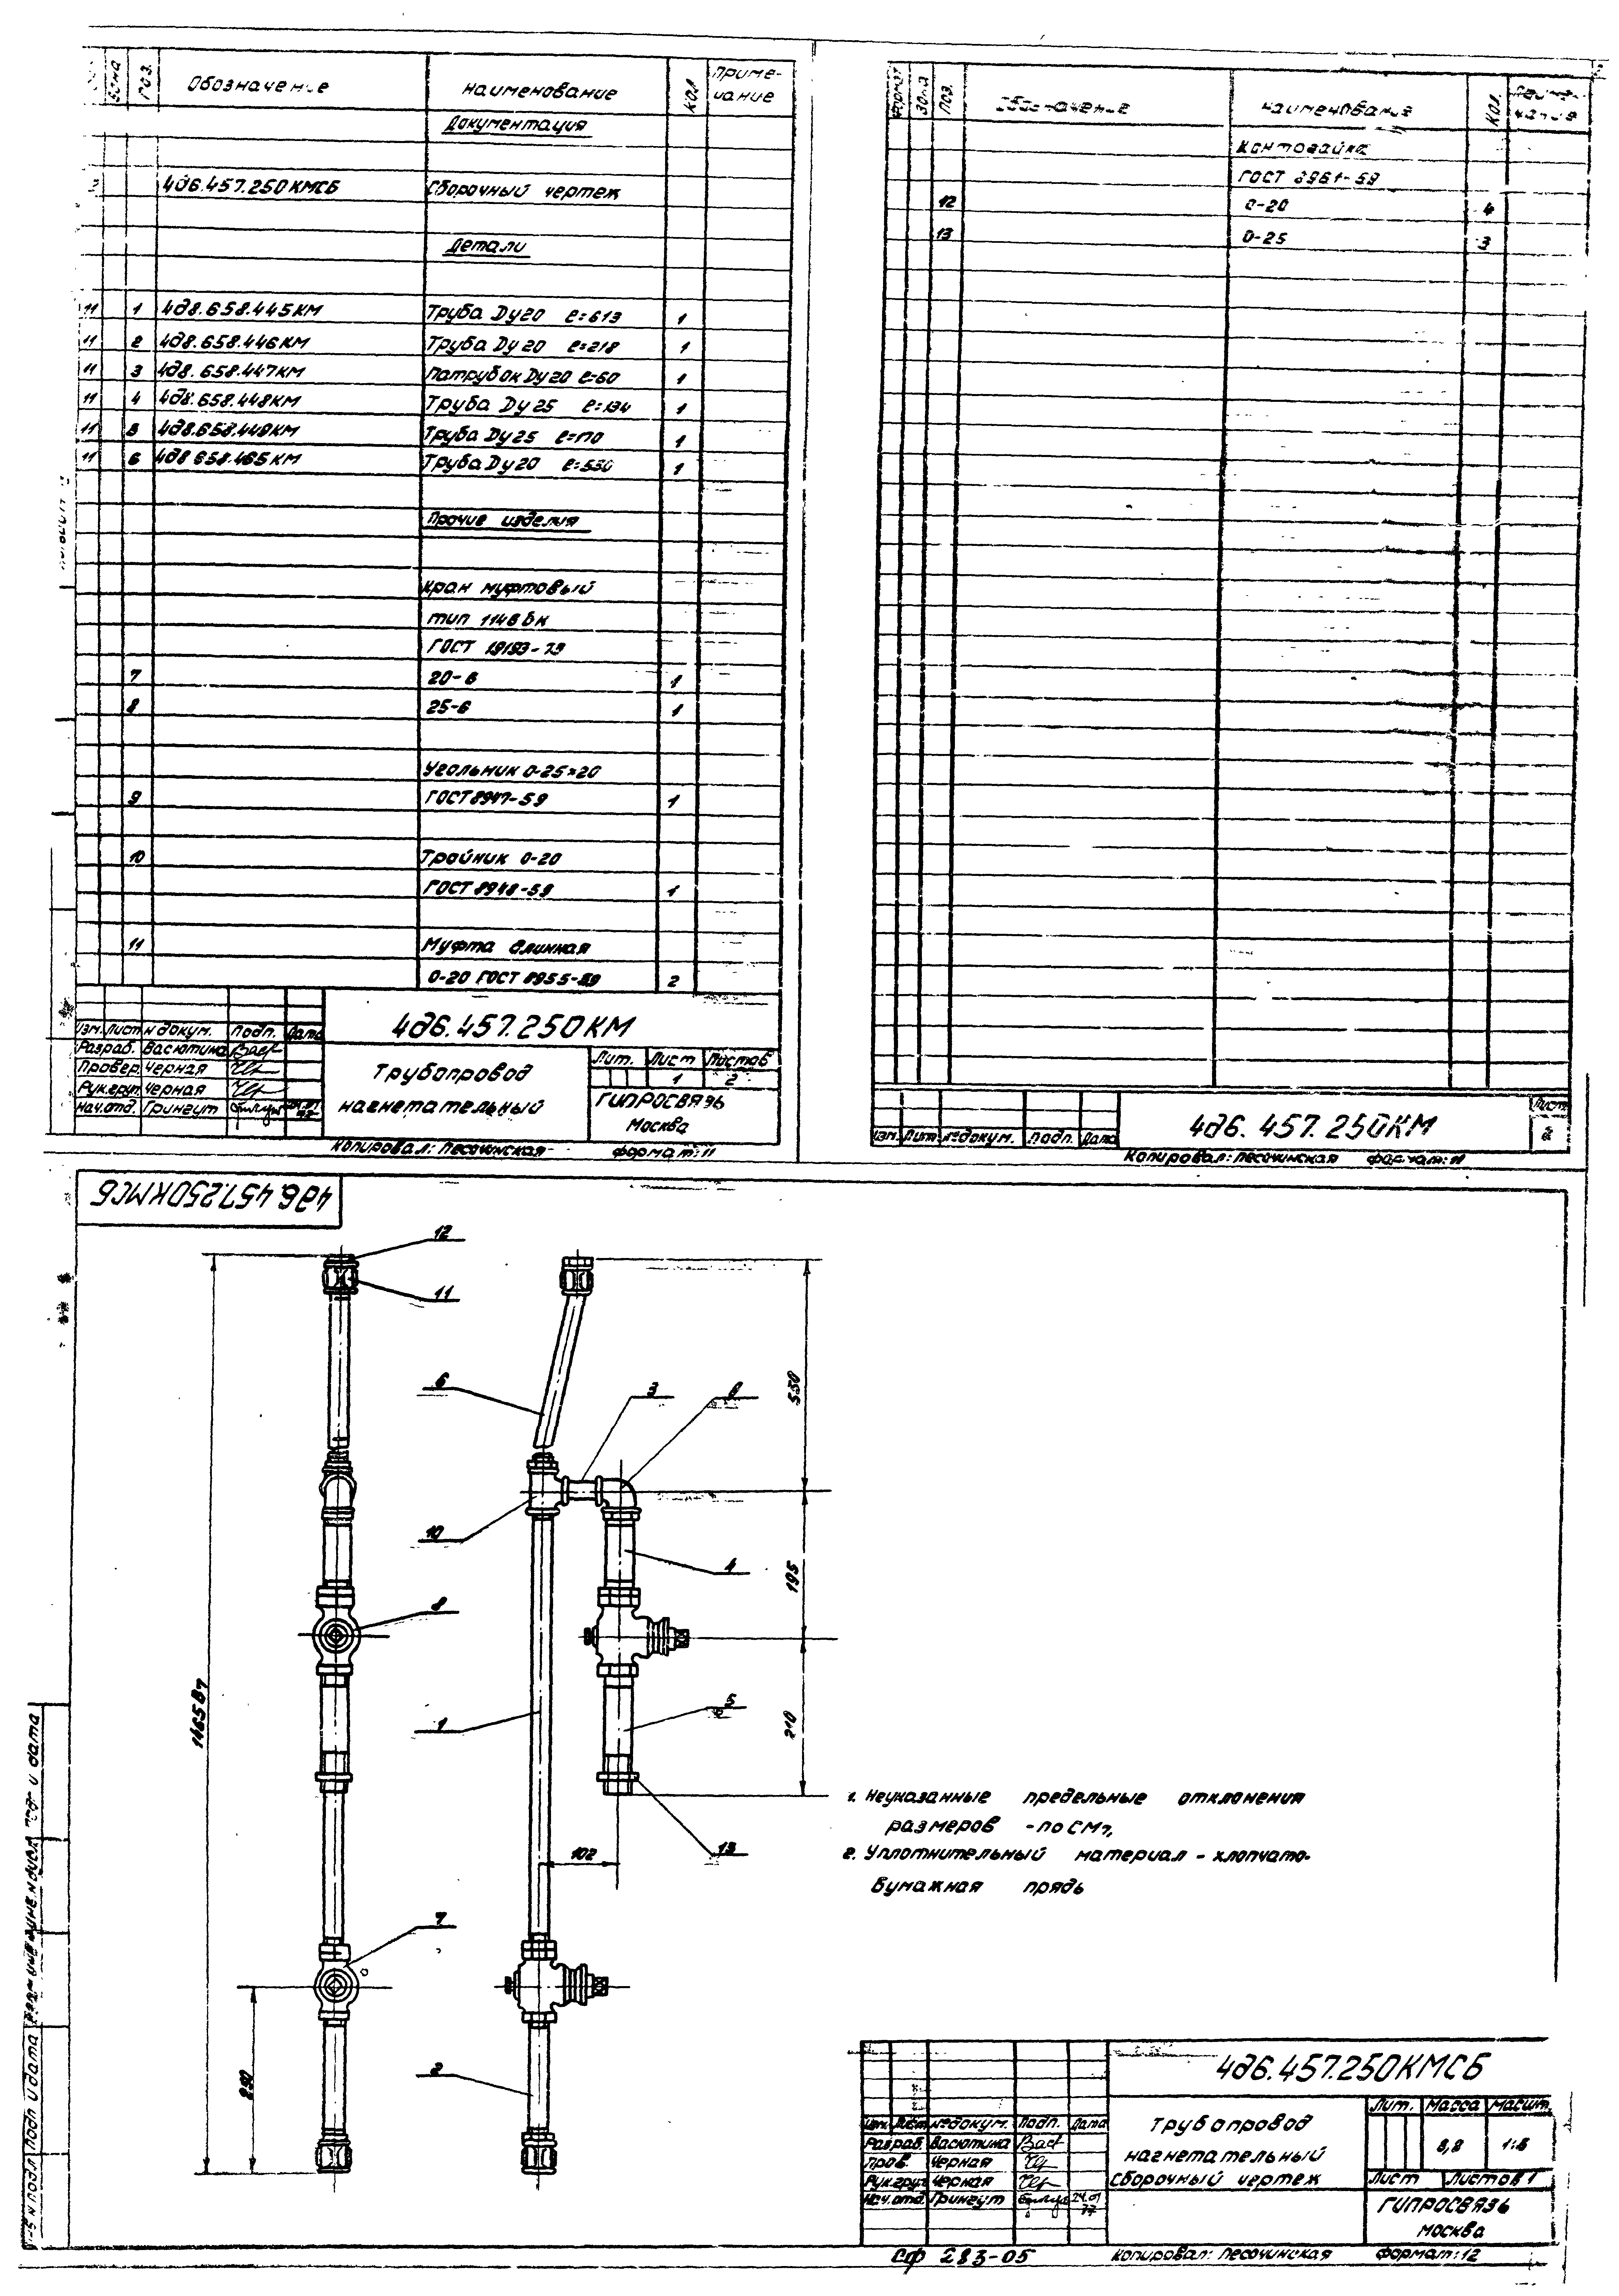 Зона Поз. Обозначение Наименование Кол Приме-
чание
Документация
4д6.457.250КМСБ Сборочный чертеж
Детали
11 1 4д8.658.445КМ Труба Dу20 ℓ=613 1
11 2 4д8.658.446КМ Труба Dу 20 ℓ=218 1
11 3 4д8.658.447КМ Патрубок Dу20 ℓ=60 1
11 4 4д8.658.448КМ Труба Dу25 ℓ=134 1
11 5 4д8.658.449КМ Труба Dу25 ℓ=170 1
11 6 4д8 658.465КМ Труба Dу20 ℓ=550 1
Прочие изделия
Кран муфтовый
тип 11ч6бк
ГОСТ 19193-73
7 20-6 1
8 25-6 1
Угольник 0-25×20
9 ГОСТ 8947-59 1
10 Тройник 0-20
ГОСТ 8948-59 1
11 Муфта длинная
0-20 ГОСТ 8955-59 2
4д6.457.250КМ
Изм. Лист № докум. Подп. Дата
Разраб. Васютина
Провер. Черная
Рук.груп. Черная
Нач.отд. Грингут
Трубопровод
нагнетательный
Лит. Лист Листов
1 2
ГИПРОСВЯЗЬ
Москва
Копировал: Песочинская формат: 11
Формат Зона Поз. Обозначение Наименование Кол. Приме-
чание
Контогайка
ГОСТ 8961-59
12 0-20 4
13 0-25 3
Изм. Лист № докум. Подп. Дата
4д6.457.250КМ
Лист
2
Копировал: Песочинская формат: 11
4д6.457.250КМСБ
12
11
6
3
10
4
8
5
1
13
7
2
550
195
210
1465
102
290
1. Неуказанные предельные отклонения
размеров - по СМ7,
2. Уплотнительный материал - хлопчато-
бумажная прядь
4д6.457.250КМСБ
Изм. Лист № докум. Подп. Дата
Разраб. Васютина
Пров. Черная
Рук.груп Черная
Нач.отд. Грингут 24.01
77
Трубопровод
нагнетательный
Сборочный чертеж
Лит. Масса Масшт.
1:5
Лист Листов 1
ГИПРОСВЯЗЬ
Москва
СФ 283-05
Копировал: Песочинская формат: 12